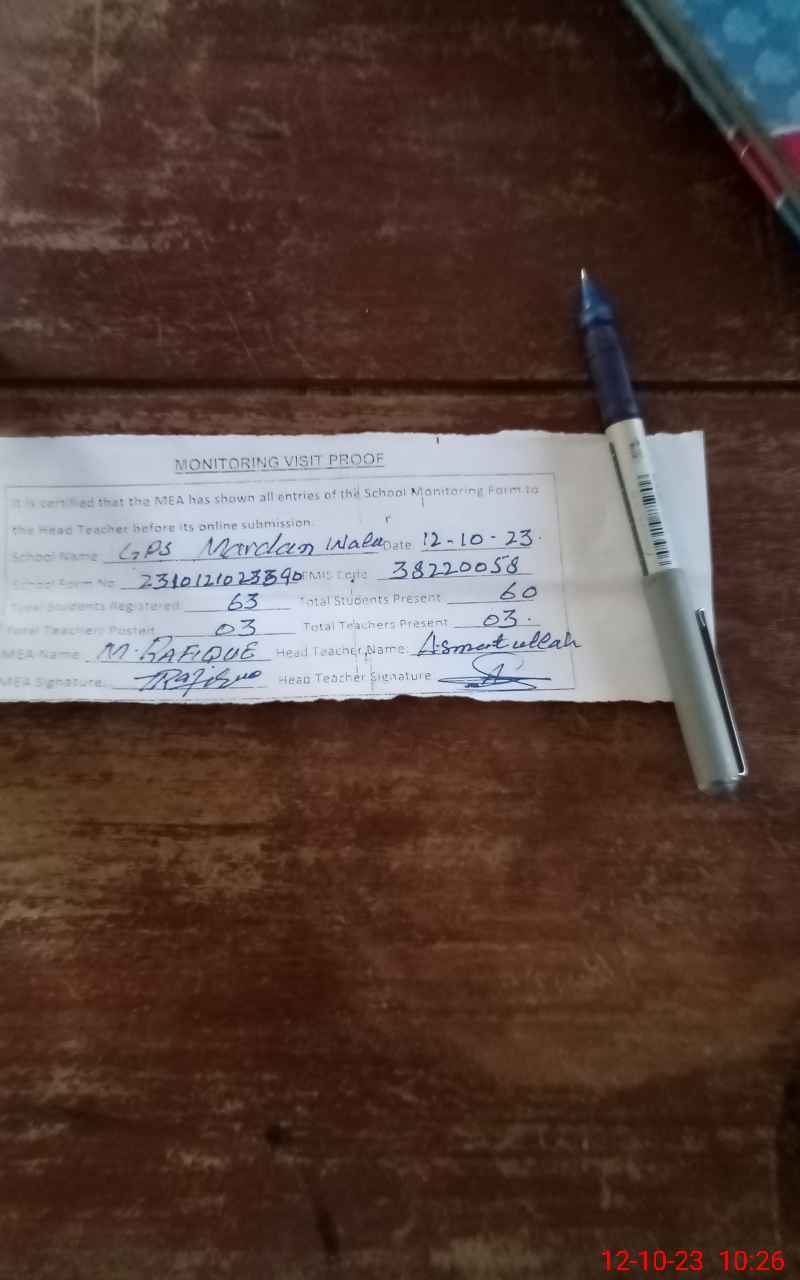 MONITORING VISIT PROOF
It is certified that the MEA has shown all entries of the School Monitoring Form to
the Head Teacher before its online submission.
School Name GPS Mardan Wala Date 12-10-23.
School Form No EMIS Code 38220058
Total Students Registered 63 Total Students Present 60
Total Teachers Posted 03 Total Teachers Present 03.
MEA Name M. RAFIQUE Head Teacher Name: Asmat ullah
MEA Signature Head Teacher Signature
12-10-23 10:26